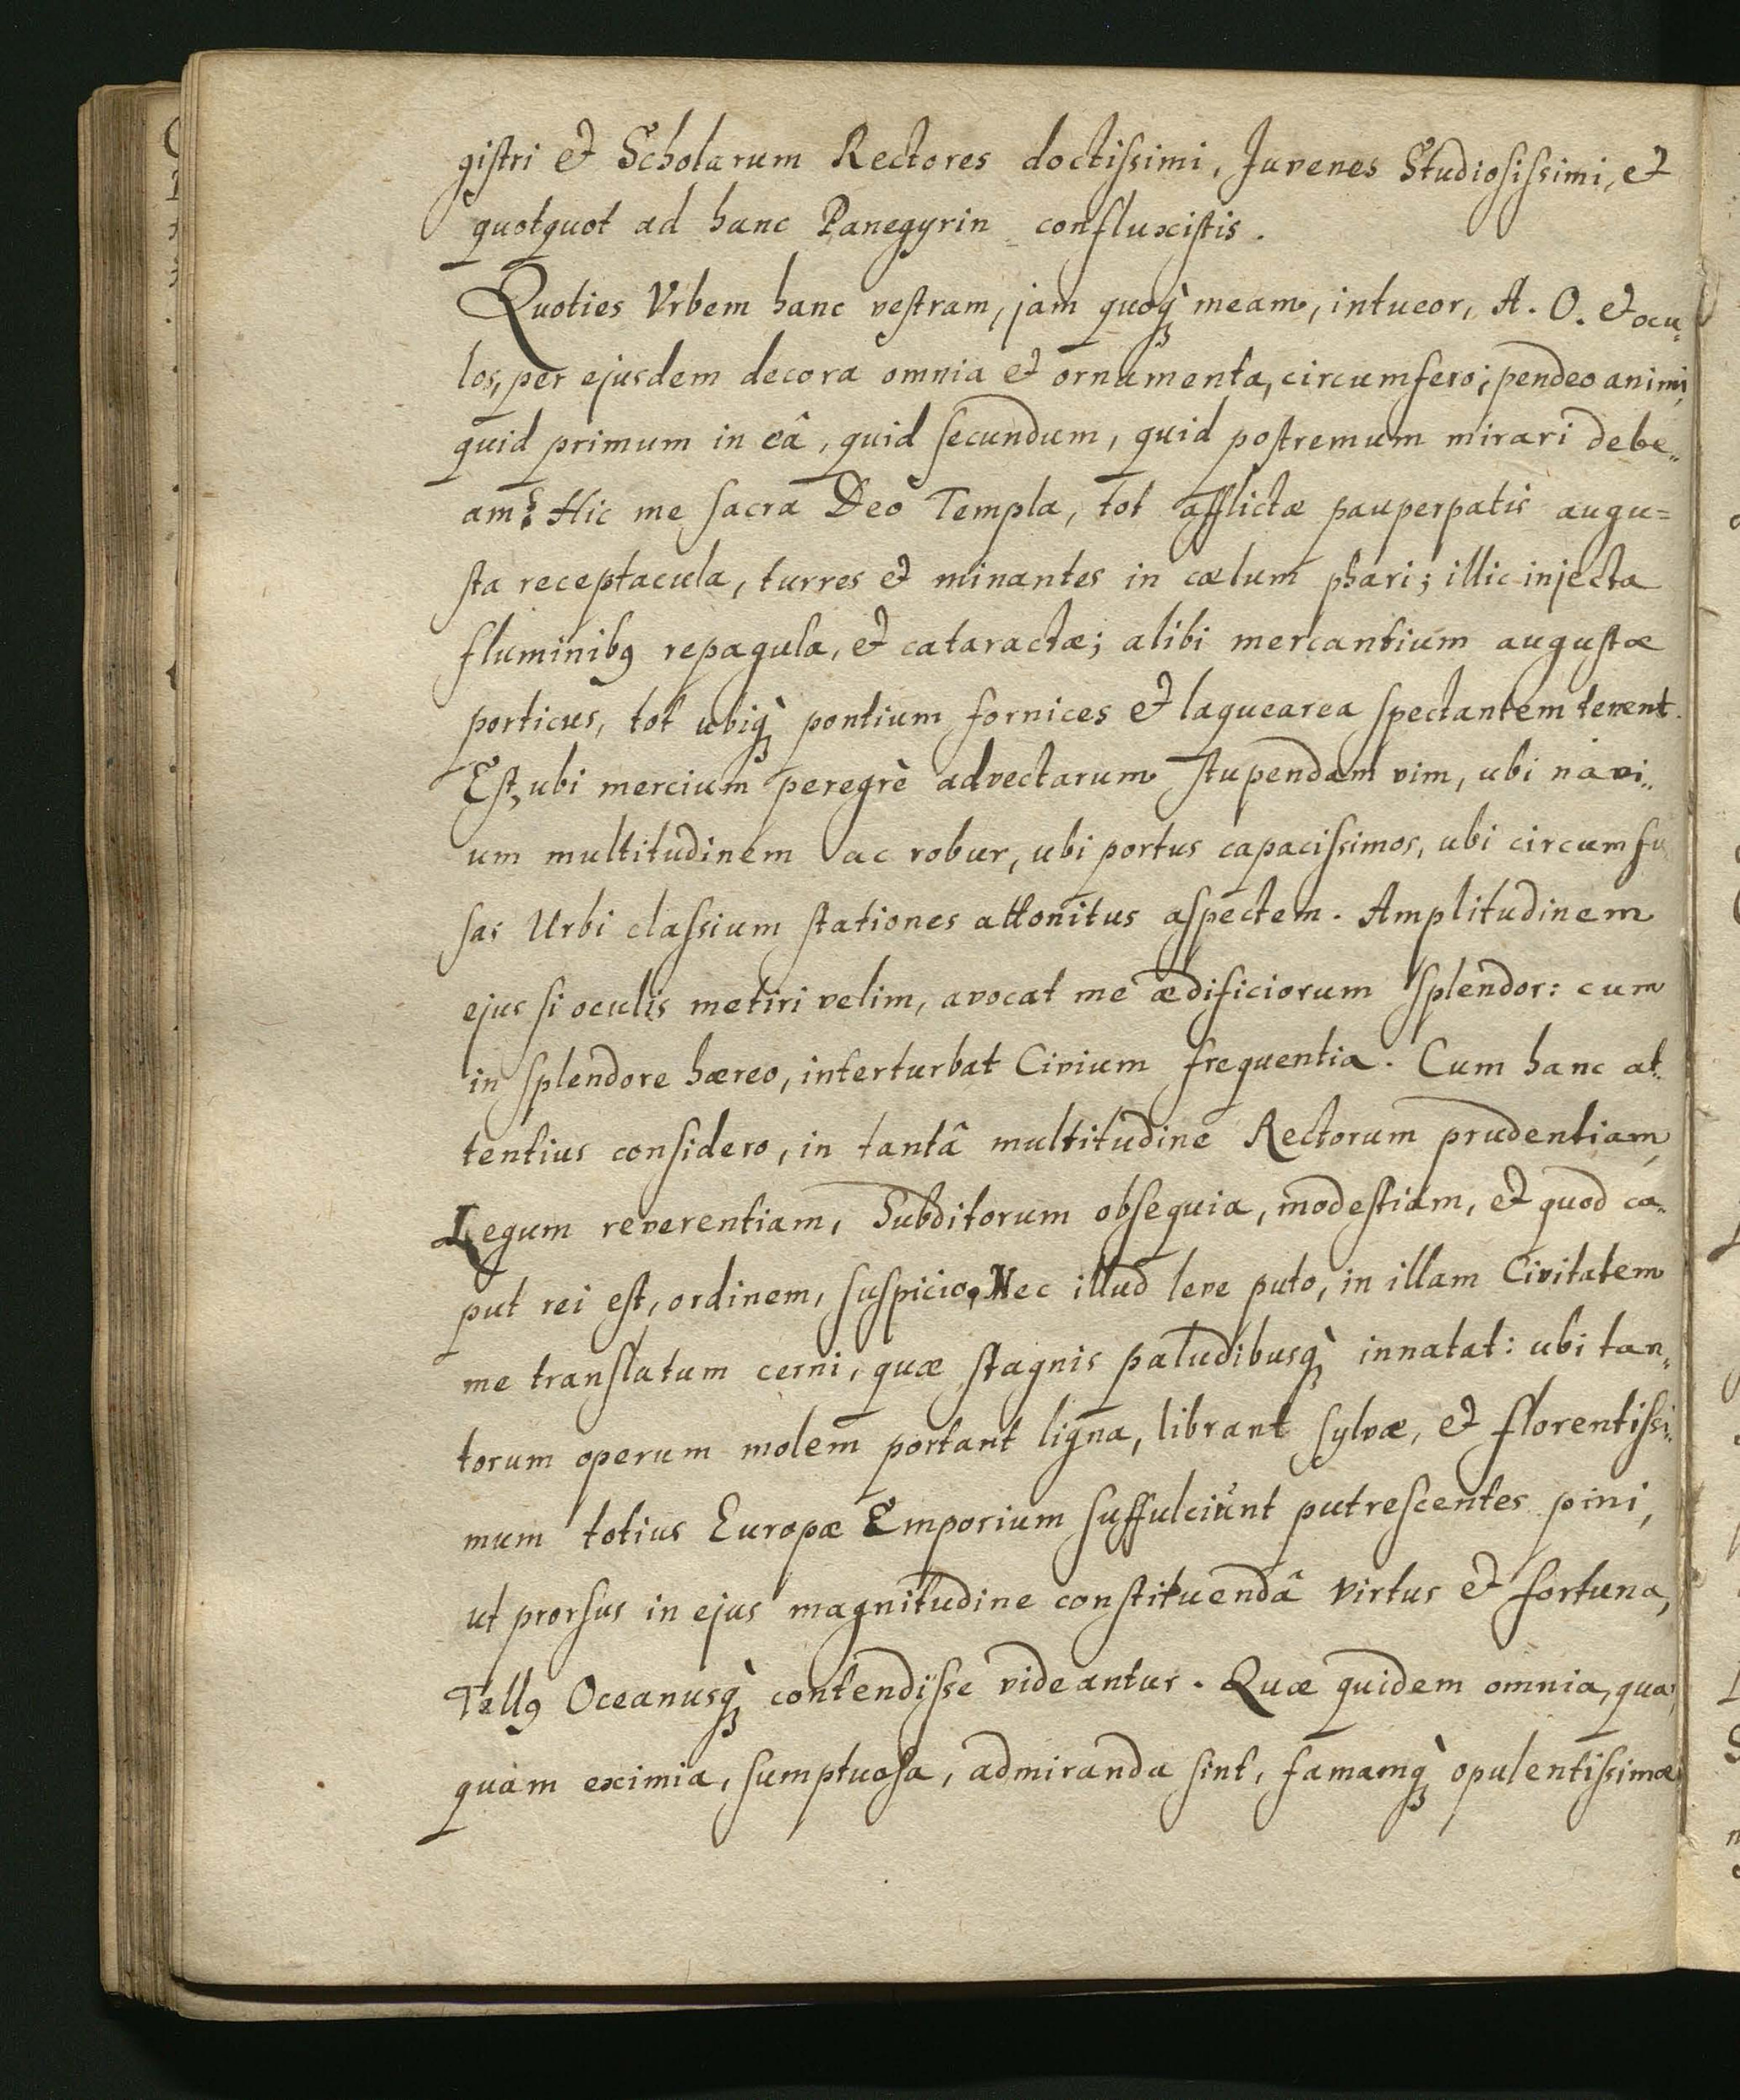 giſtri et Scholarum Rectores doctiſsimi, Juvenes Studioſiſsimi, et
quotquot ad hanc Panegyrin confluxiſtis.
Quoties Vrbem hanc veſtram, jam quoq̀ꝫ meam, intueor, A. O. et ocu„
los, per ejusdem decora omnia et ornamenta, circumfero; pendeo animi,
quid primum in eâ, quid ſecundum, quid poſtremum mirari debe„
am? Hic me ſacra Deo Templa, tot afflictæ pauperpatis augu=
ſta receptacula, turres et minantes in cælum phari; illic injecta
fluminibꝰ repagula, et cataractæ; alibi mercantium auguſtæ
porticus, tot ubiq̀ꝫ pontium fornices et laquearea ſpectantem tenent.
Eſt, ubi mercium peregrè advectarum ſtupendam vim, ubi navi„
um multitudinem ac robur, ubi portus capaciſsimos, ubi circumfu
ſas Urbi claſsium ſtationes attonitus aſpectem. Amplitudinem
ejus ſi oculis metiri velim, avocat me ædificiorum ſplendor: cum
in ſplendore hæreo, interturbat Civium frequentia. Cum hanc at„
tentius conſidero, in tantâ multitudine Rectorum prudentiam,
Legum reverentiam, Subditorum obſequia, modeſtiam, et quod ca„
put rei eſt, ordinem, ſuſpicio. Nec illud leve puto, in illam Civitatem
me tranſlatum cerni, quæ ſtagnis paludibusq̀ꝫ innatat: ubi tan„
torum operum molem portant ligna, librant ſylvæ, et florentiſsi„
mum totius Europæ Emporium ſuffulciunt putreſcentes pini,
ut prorſus in ejus magnitudine conſtituendâ virtus et fortuna,
Tellꝰ Oceanusq̀ꝫ contendiſse videantur. Quæ quidem omnia, qua„
quam eximia, ſumptuoſa, admiranda ſint, famamq̀ꝫ opulentiſsimæ